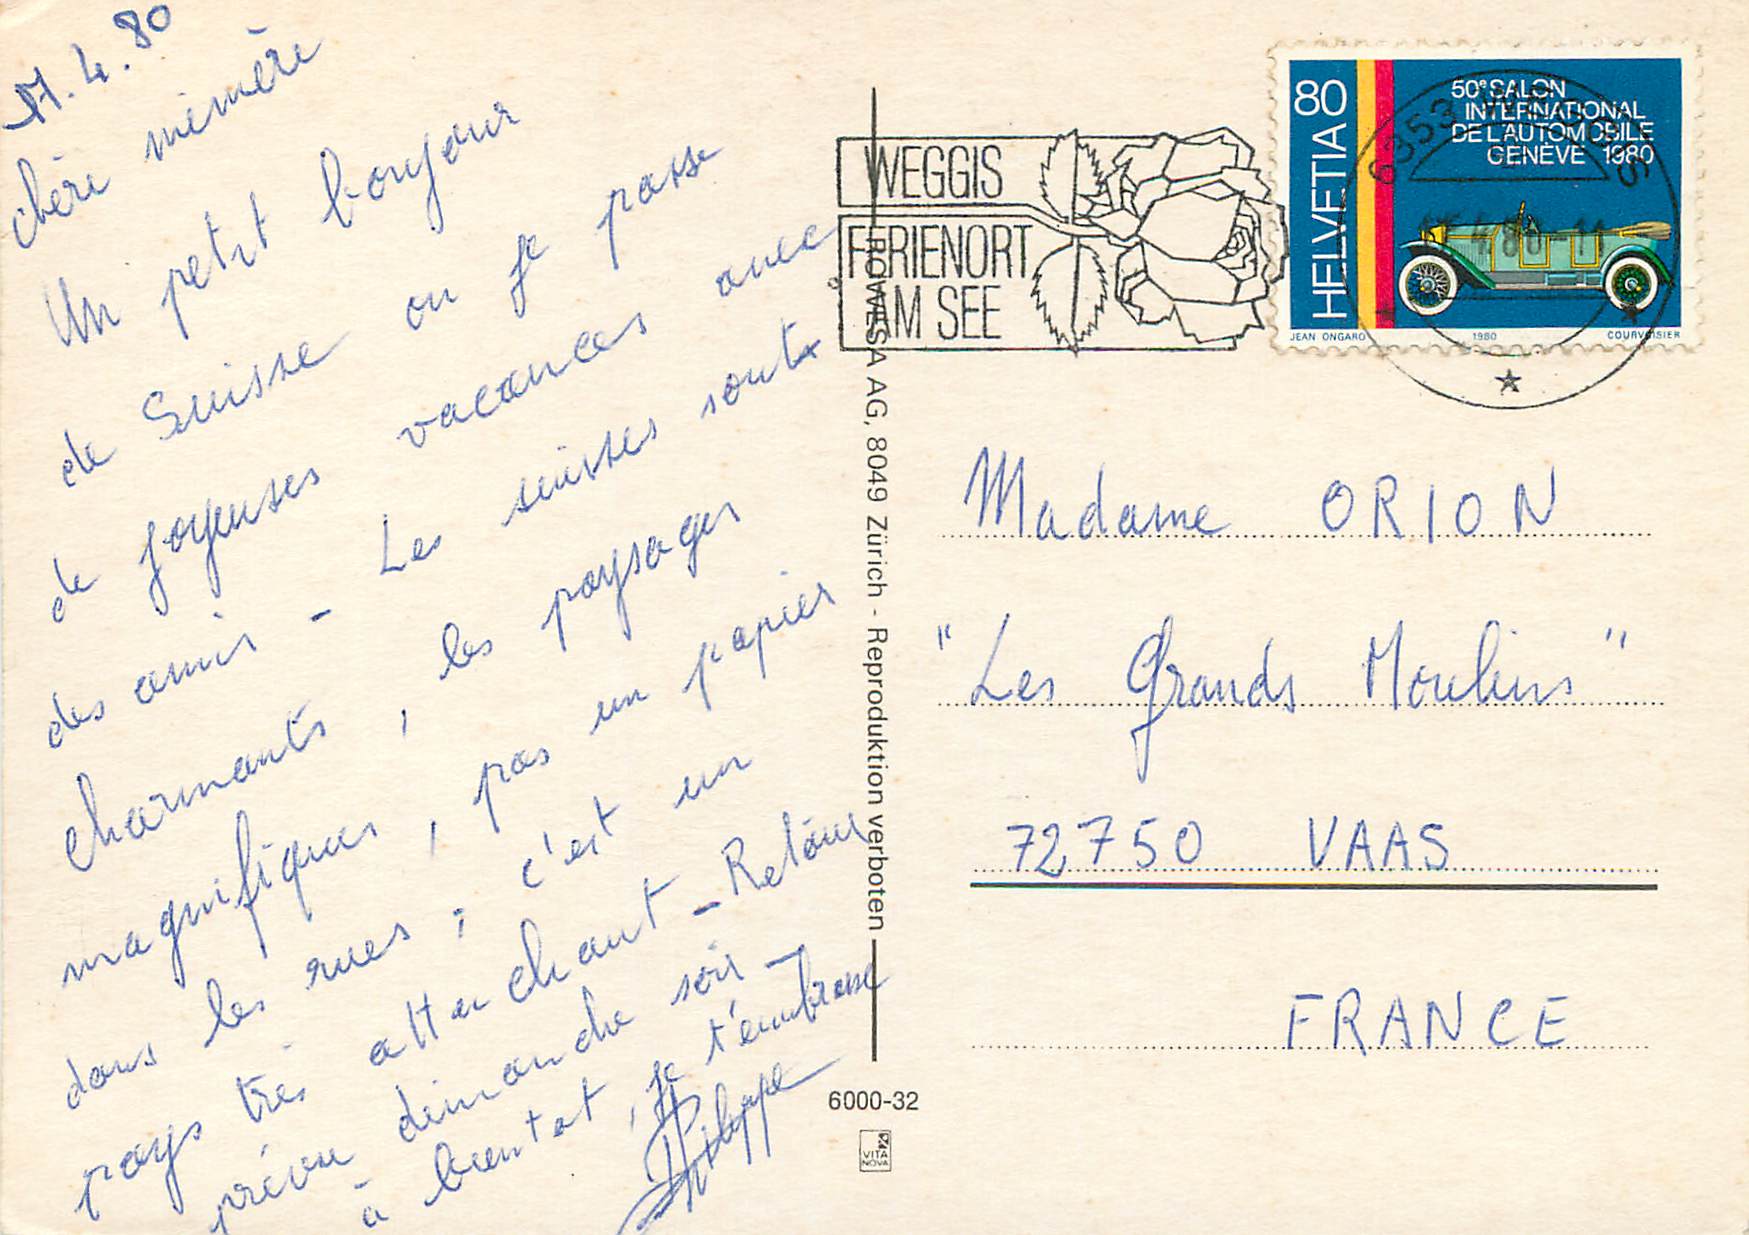 17.4.80
chère mémère
Un petit bonjour
de Suisse ou je passe
de joyeuses vacances avec
des amis - Les suisses sont
charmants, les paysages
magnifiques, pas un papier
dans les rues ; c'est un
pays très attachant - Retour
prévu dimanche soir -
à bientot, je t'embrasse
Philippe
WEGGIS
FERIENORT
AM SEE
80
HELVETIA
50e SALON
INTERNATIONAL
DE L'AUTOMOBILE
GENÈVE 1980
JEAN ONGARO 1980 COURVOISIER
6353 WEGGIS
4.80-11
BOWESA AG, 8049 Zürich - Reproduktion verboten
6000-32
VITA
NOVA
Madame ORION
"Les Grands Moulins"
72750 VAAS
FRANCE